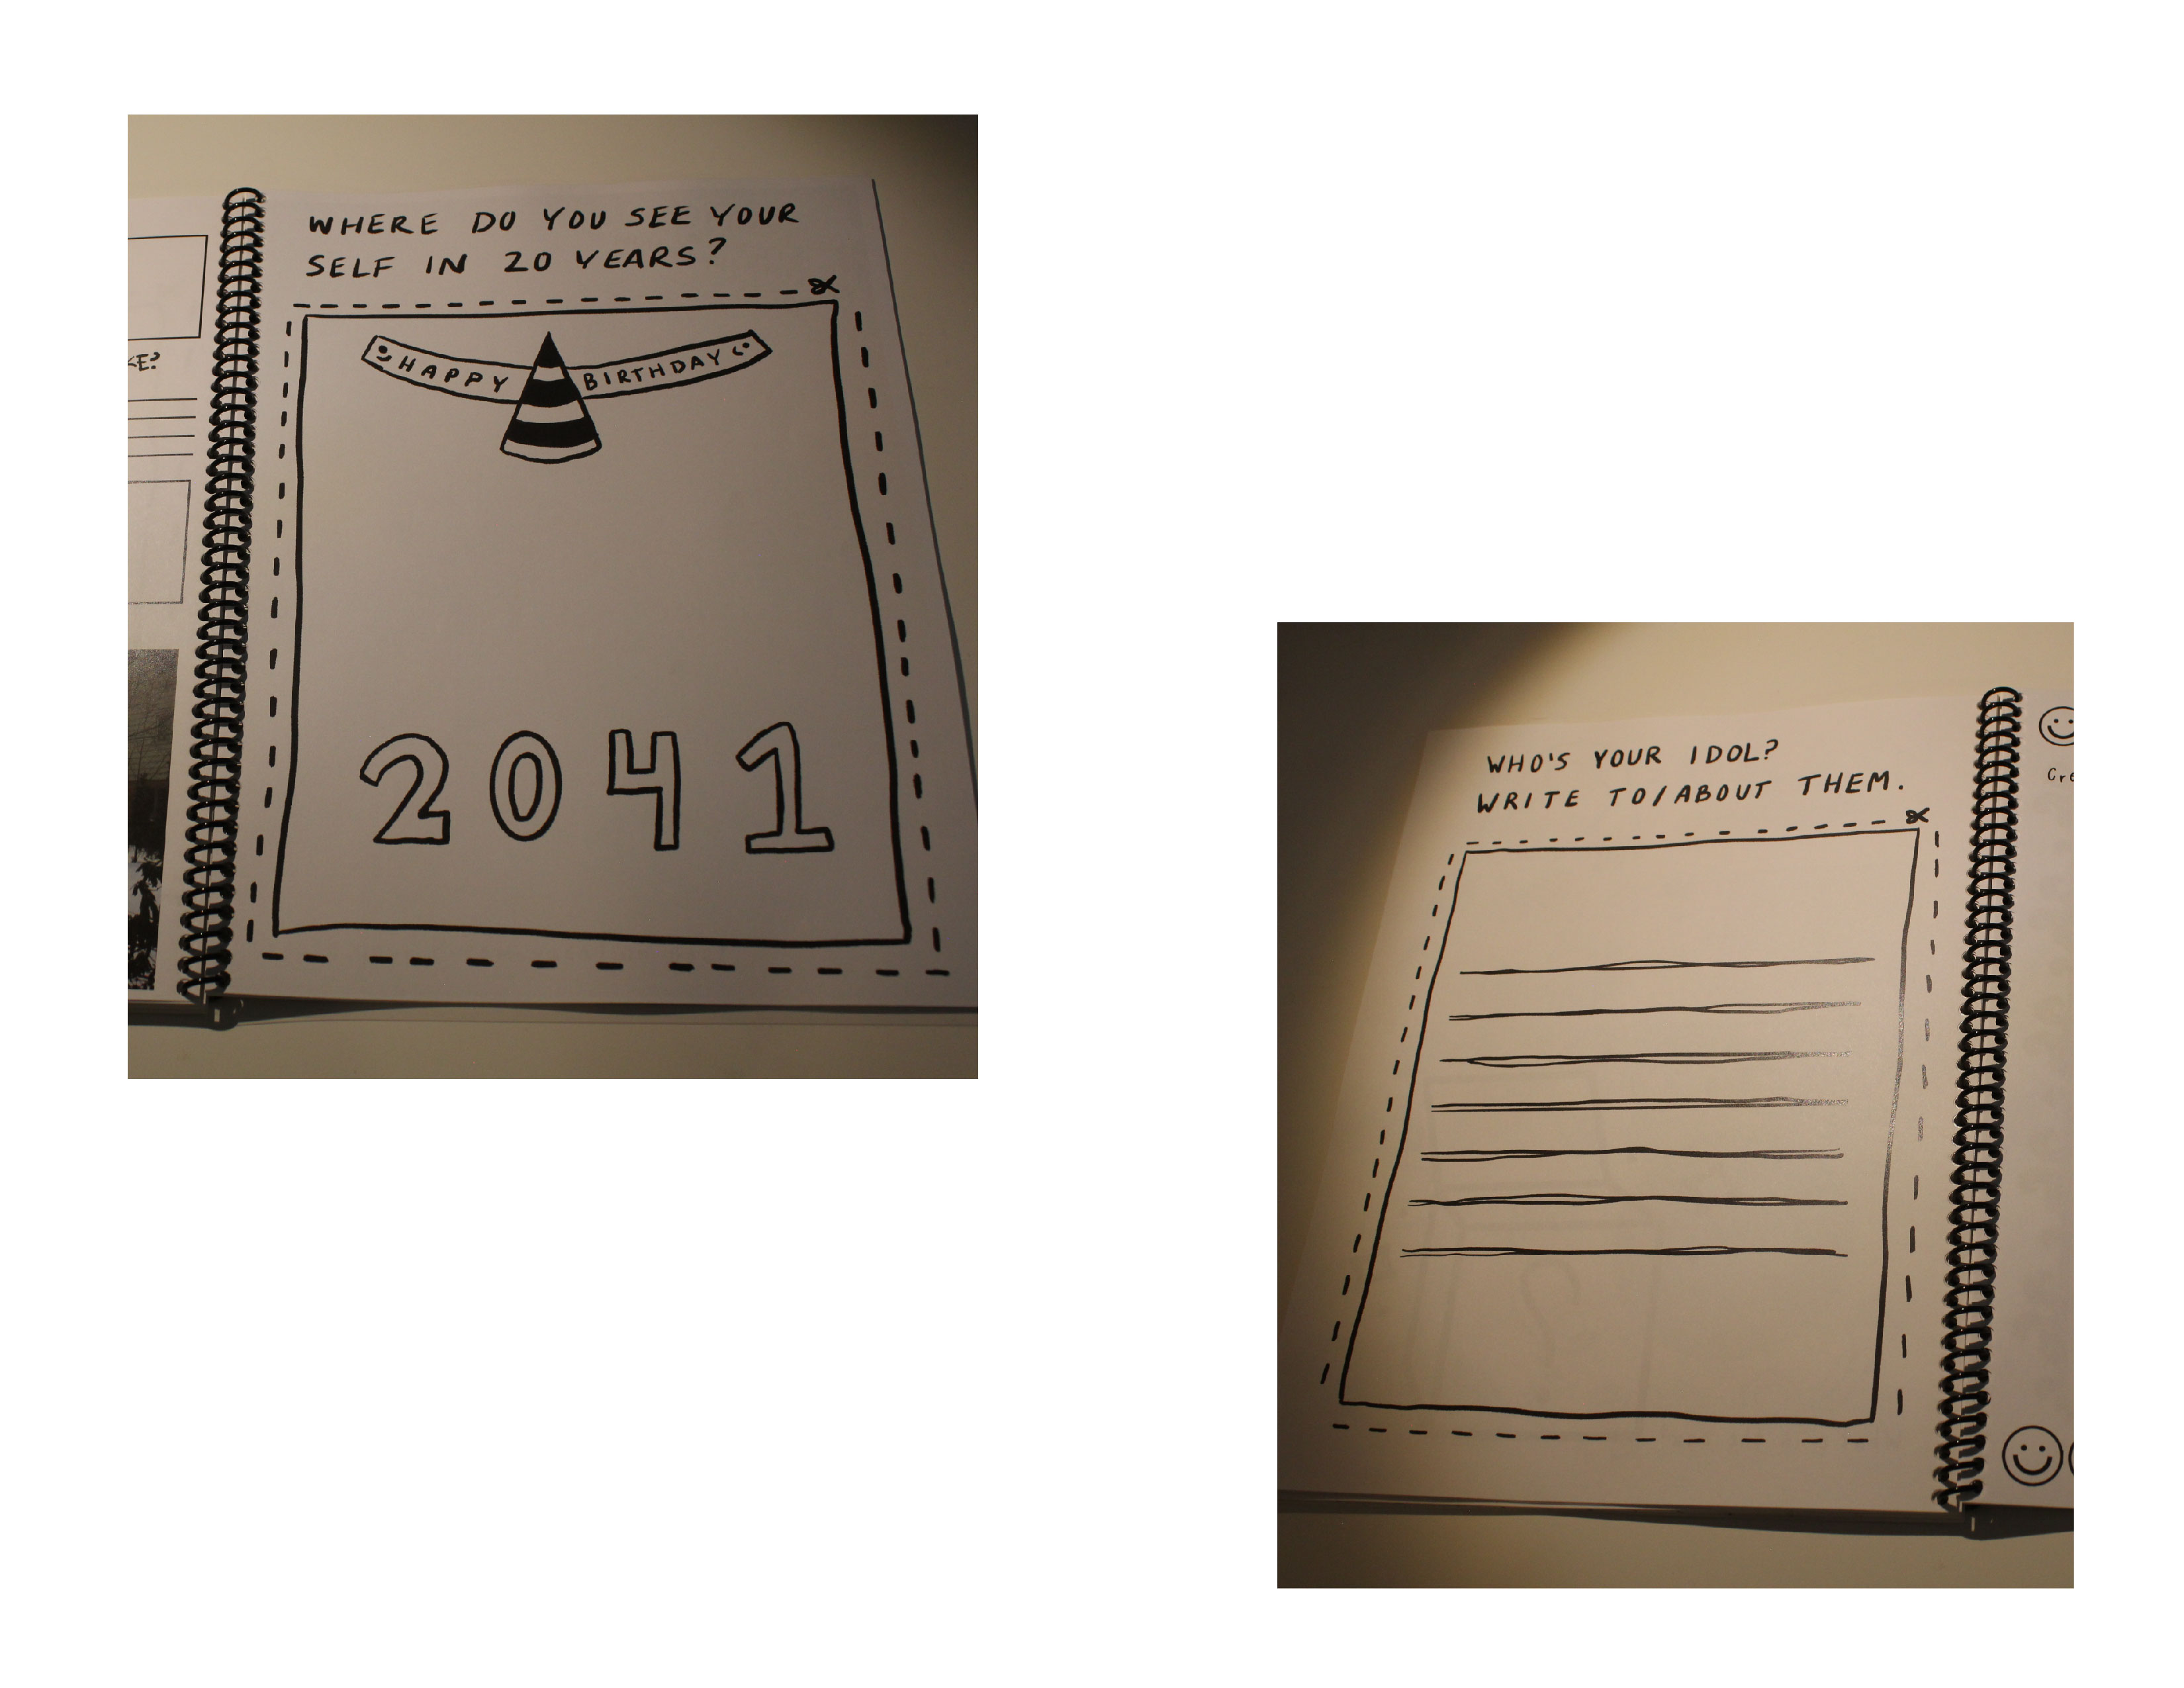 WHERE DO YOU SEE YOUR
SELF IN 20 YEARS?
HAPPY BIRTHDAY
2041
WHO'S YOUR IDOL?
WRITE TO/ABOUT THEM.